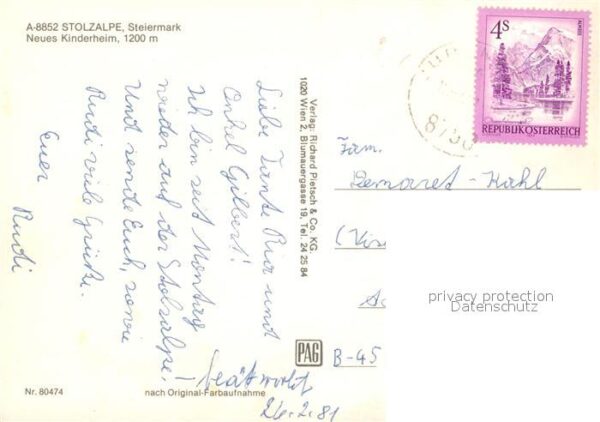 A-8852 STOLZALPE, Steiermark
Neues Kinderheim, 1200 m
Liebe Tante Ria und
Onkel Gilbert!
Ich bin seit Montag
wieder auf der Stolzalpe.
Und sende Euch, sowie
Rudi viele Grüße.
Euer Rudi
26.2.81
Verlag: Richard Pietsch & Co. KG.
1020 Wien 2, Blumauergasse 19, Tel. 24 25 84
PAG
4S
ALMSEE
REPUBLIK ÖSTERREICH
Fam.
Demaret-Kohl
B-45
privacy protection
Datenschutz
Nr. 80474
nach Original-Farbaufnahme